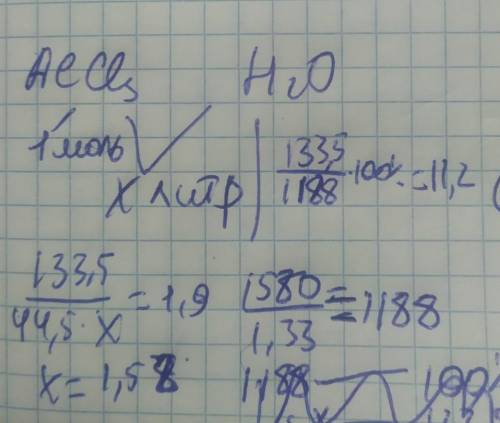 AlCl₃ H₂O
1 моль
X литр
133,5/1188 · 100% = 11,2
133,5/44,5·X = 1,9
1580/1,33 = 1188
X = 1,58
1188 — 100